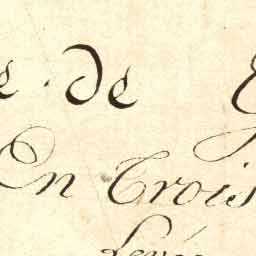 e de
En Trois
Levée